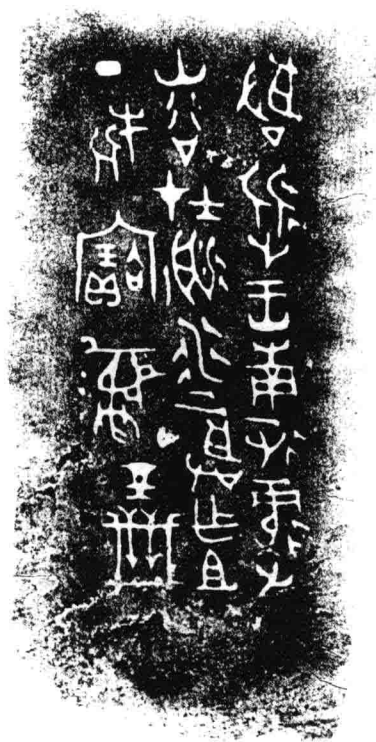 啟從王南征
山谷在洀水上啟乍且
丁旅寶彝